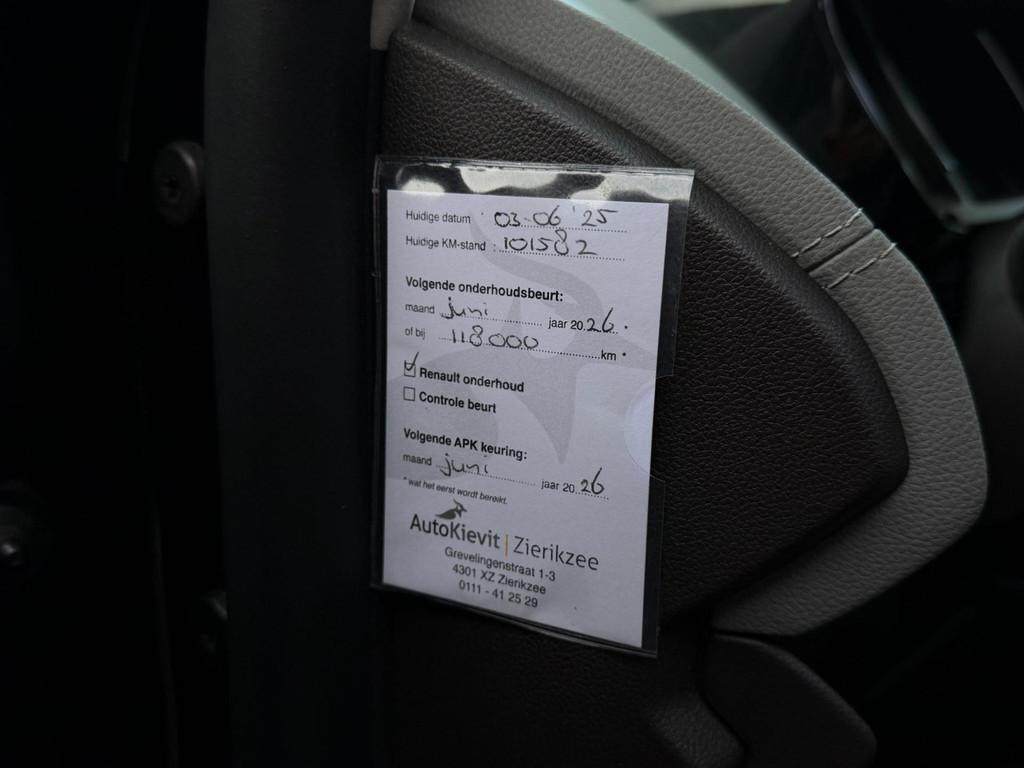 Huidige datum : 03-06 '25
Huidige KM-stand : 101582
Volgende onderhoudsbeurt:
maand juni jaar 2026.
of bij 118000 km *
Renault onderhoud
Controle beurt
Volgende APK keuring:
maand juni jaar 2026
* wat het eerst wordt bereikt.
AutoKievit | Zierikzee
Grevelingenstraat 1-3
4301 XZ Zierikzee
0111 - 41 25 29